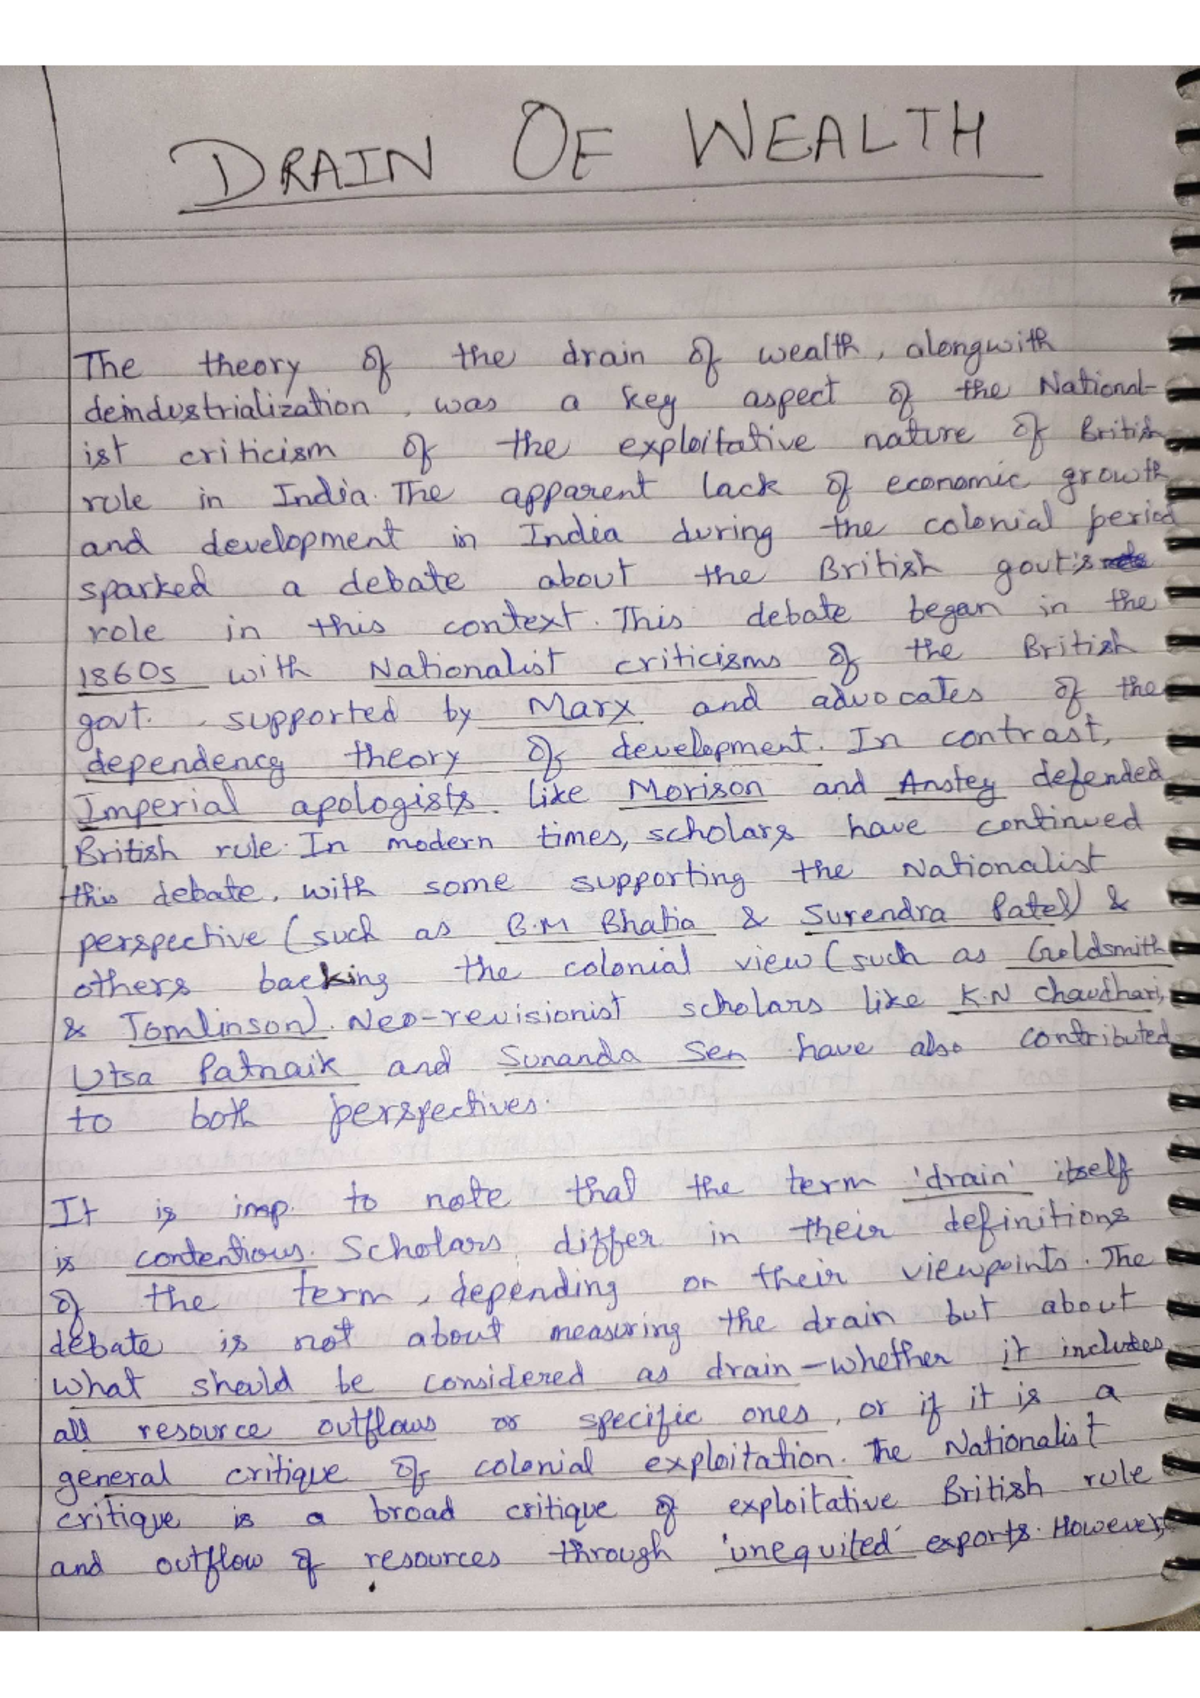 DRAIN OF WEALTH
The theory of the drain of wealth, alongwith
deindustrialization, was a key aspect of the National-
ist criticism of the exploitative nature of British
rule in India. The apparent lack of economic growth
and development in India during the colonial period
sparked a debate about the British govt's
role in this context. This debate began in the
1860s with Nationalist criticisms of the British
govt. supported by Marx and advocates of the
dependency theory of development. In contrast,
Imperial apologists like Morison and Anstey defended
British rule. In modern times, scholars have continued
this debate, with some supporting the Nationalist
perspective (such as B.M Bhatia & Surendra Patel) &
others backing the colonial view (such as Goldsmith
& Tomlinson). Neo-revisionist scholars like K.N Chaudhari,
Utsa Patnaik and Sunanda Sen have also contributed
to both perspectives.
It is imp. to note that the term 'drain' itself
is contentious. Scholars differ in their definitions
of the term, depending on their viewpoints. The
debate is not about measuring the drain but about
what should be considered as drain - whether it includes
all resource outflows or specific ones, or if it is a
general critique of colonial exploitation. The Nationalist
critique is a broad critique of exploitative British rule
and outflow of resources through 'unequited' exports. However,